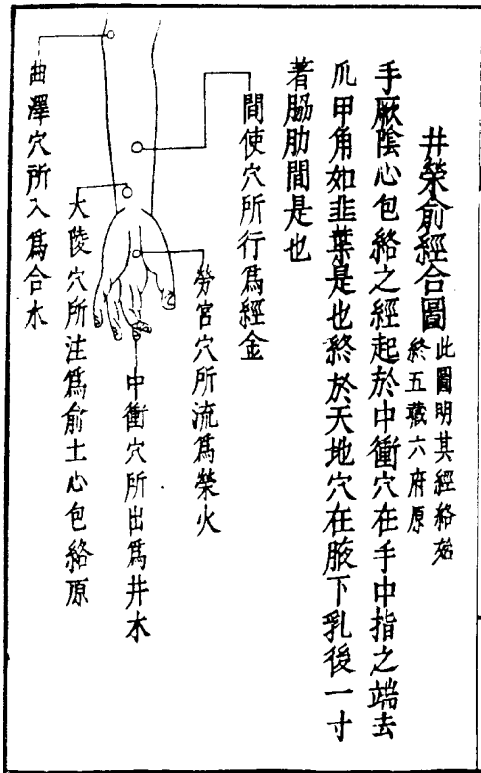 井榮俞經合圖
此圖明其經絡始
終五臟六府原
手厥陰心包絡之經起於中衝穴在手中指之端去
爪甲角如韭葉是也終於天地穴在腋下乳後一寸
著脇肋間是也
間使穴所行爲經金
勞宮穴所流爲榮火
中衝穴所出爲井木
大陵穴所注爲俞土心包絡原
曲澤穴所入爲合水